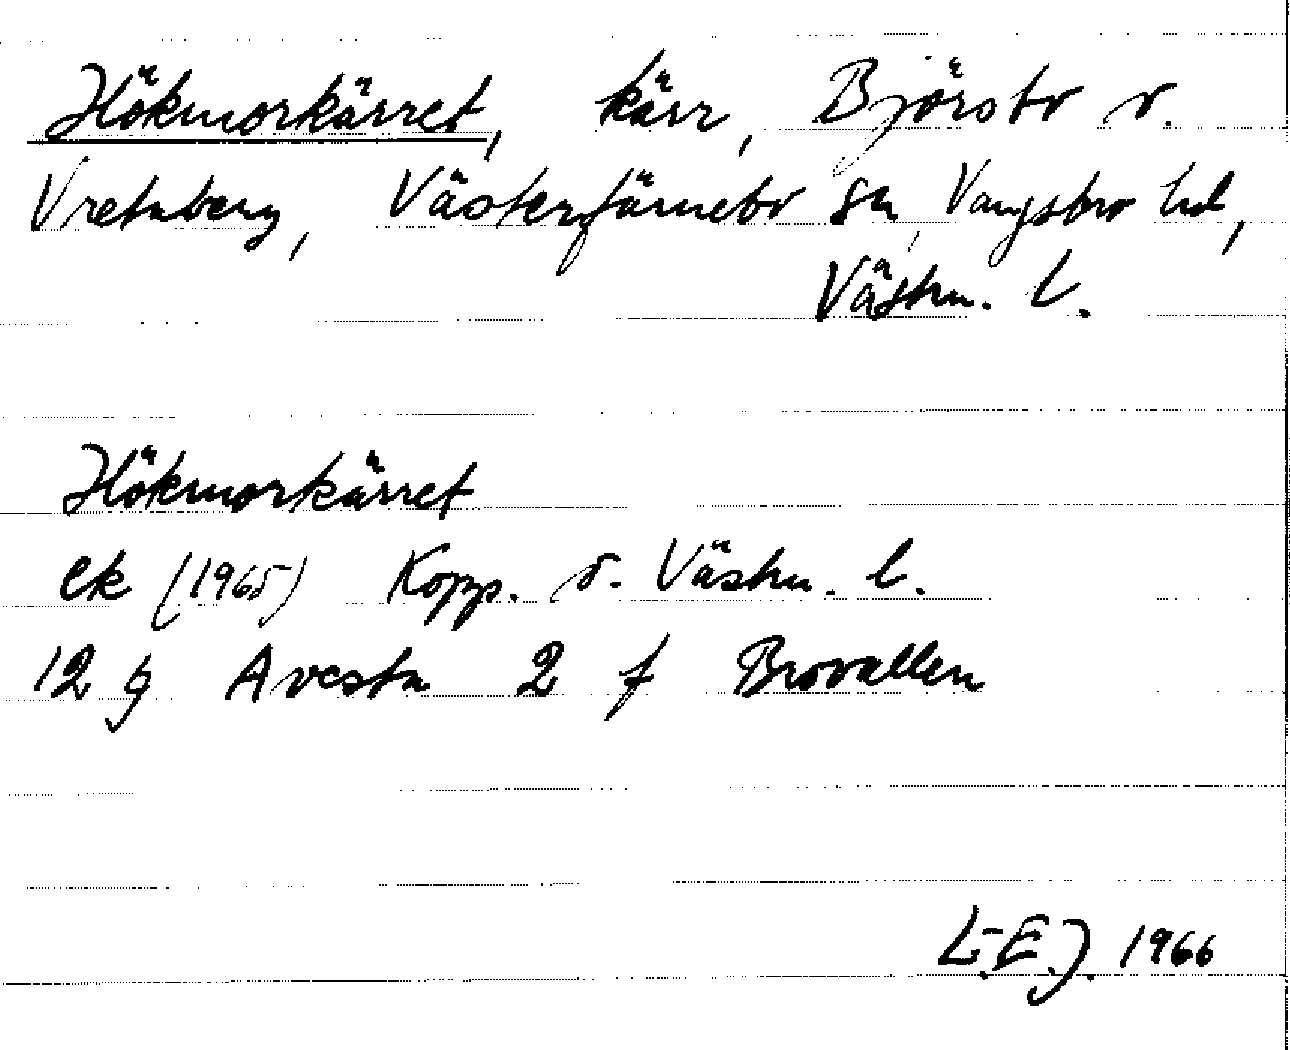 Hökmorkärret, kärr, Björsbo o.
Vretaberg, Västerfärnebo sn, Vangsbro hd,
Västm. l.
Hökmorkärret
ek (1965) Kopp. o. Västm. l.
12 g Avesta 2 f Brovallen
L-E.J. 1966